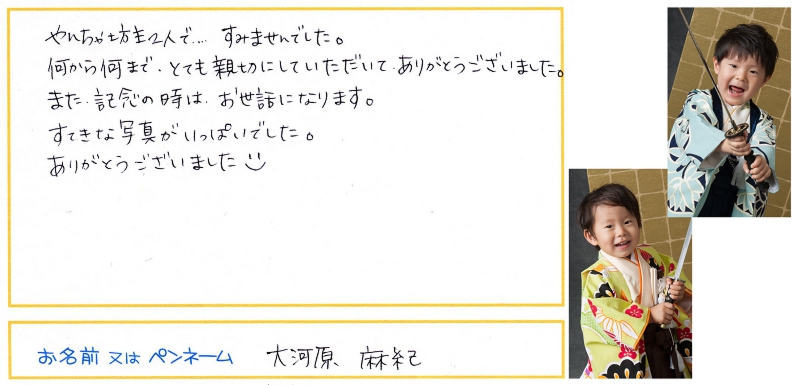 やんちゃ坊主2人で…. すみませんでした。
何から何まで、とても親切にしていただいて、ありがとうございました。
また、記念の時は、お世話になります。
すてきな写真がいっぱいでした。
ありがとうございました
お名前 又は ペンネーム 大河原 麻紀